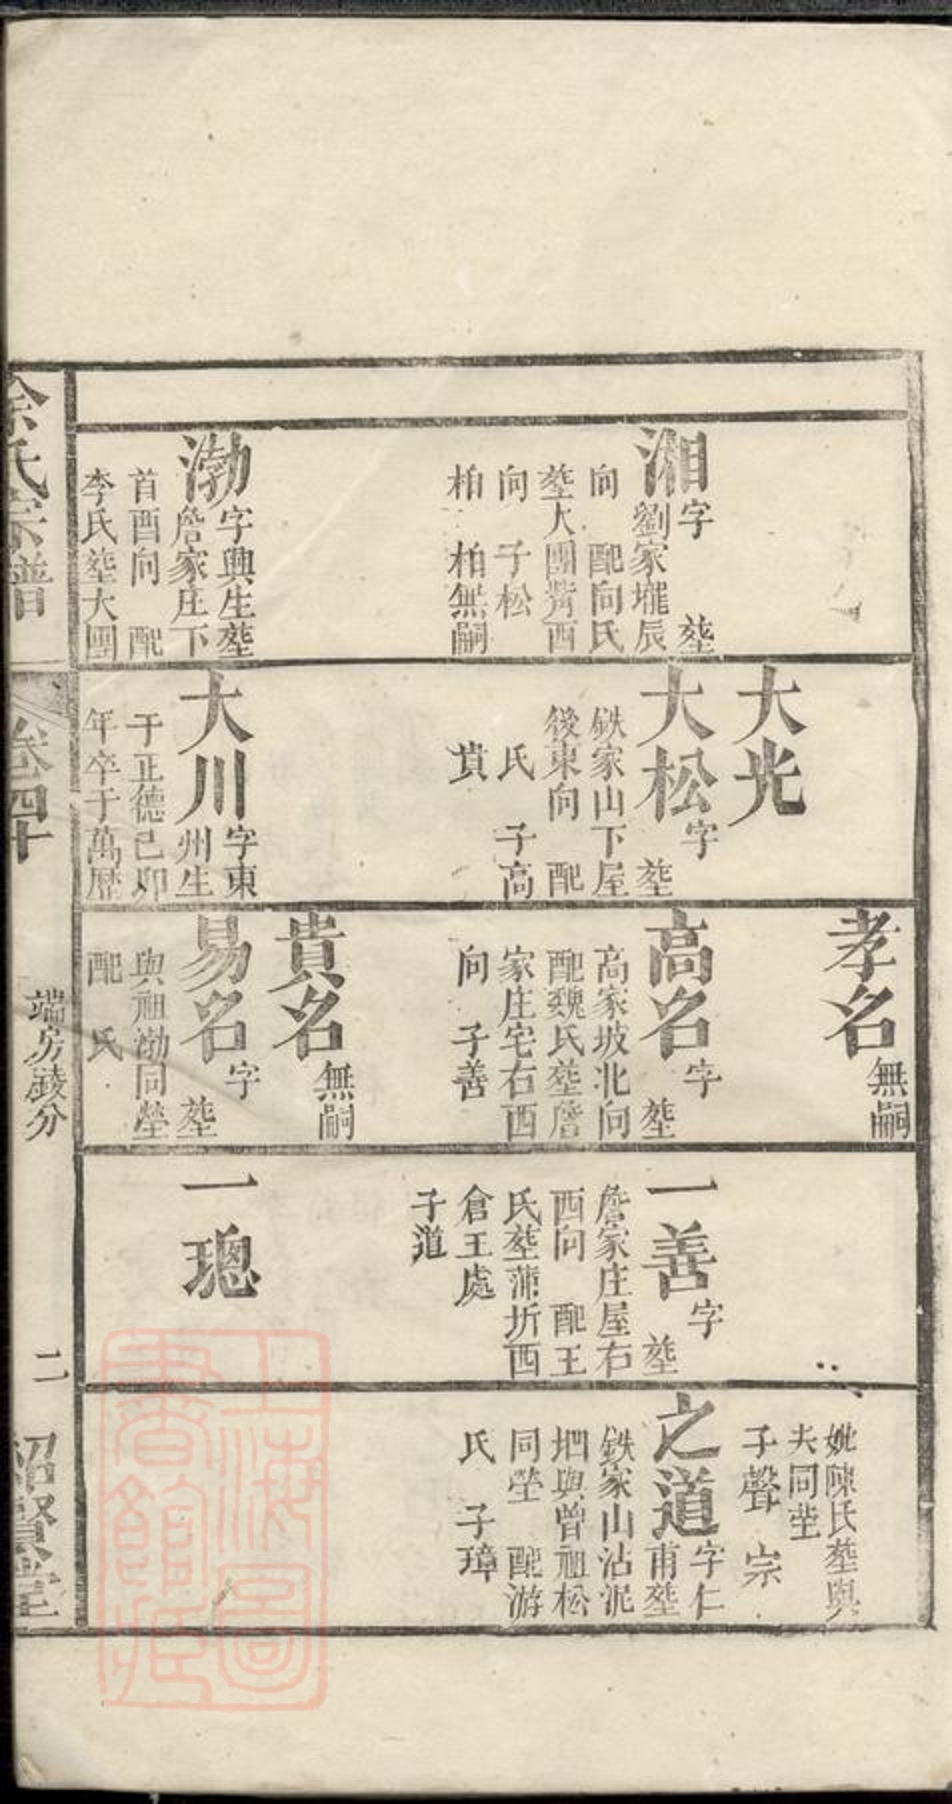 湘
字　葬
劉家壠辰
向　配向氏
塟大團觜西
向　子松
柏　柏無嗣
渤
字興生塟
詹家庄下
首酉向　配
李氏塟大團
大光
大松
字　塟
鉄家山下屋
後東向　配
氏　子高
貴
大川
字東
州生
于正德己卯
年卒于萬歷
孝名
無嗣
高名
字　塟
高家坡北向
配魏氏塟詹
家庄宅右西
向　子善
貴名
無嗣
易名
字　塟
與祖渤同塋
配　氏
一善
字　塟
詹家庄屋右
西向　配王
氏塟蒲圻西
倉王處
子道
一璁
妣陳氏塟與
夫同塋
子聲　宗
之道
字仁
甫塟
鉄家山沾泥
垇與曾祖松
同塋　配游
氏　子璋
徐氏宗譜
卷四十
端房鼓分
二
紹賢堂
上海圖
書館藏